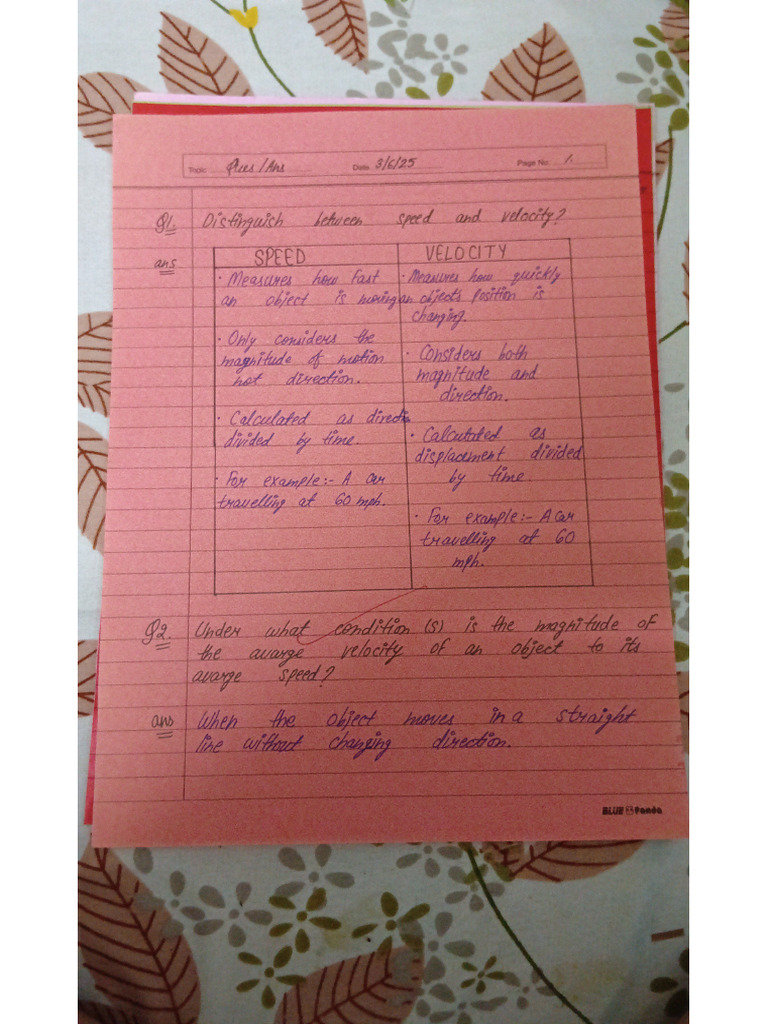 Topic Ques/Ans Date 3/6/25 Page No. 1.
Q1. Distinguish between speed and velocity?
ans
SPEED
· Measures how fast
an object is moving
· Only considers the
magnitude of motion
not direction.
· Calculated as
divided by time.
· For example:- A car
travelling at 60 mph.
VELOCITY
· Measures how quickly
an object's position is
changing.
· Considers both
magnitude and
direction.
· Calculated as
displacement divided
by time.
· For example:- A car
travelling at 60
mph.
Q2. Under what condition (s) is the magnitude of
the avarge velocity of an object to its
avarge speed?
ans When the object moves in a straight
line without changing direction.
BLUE Panda